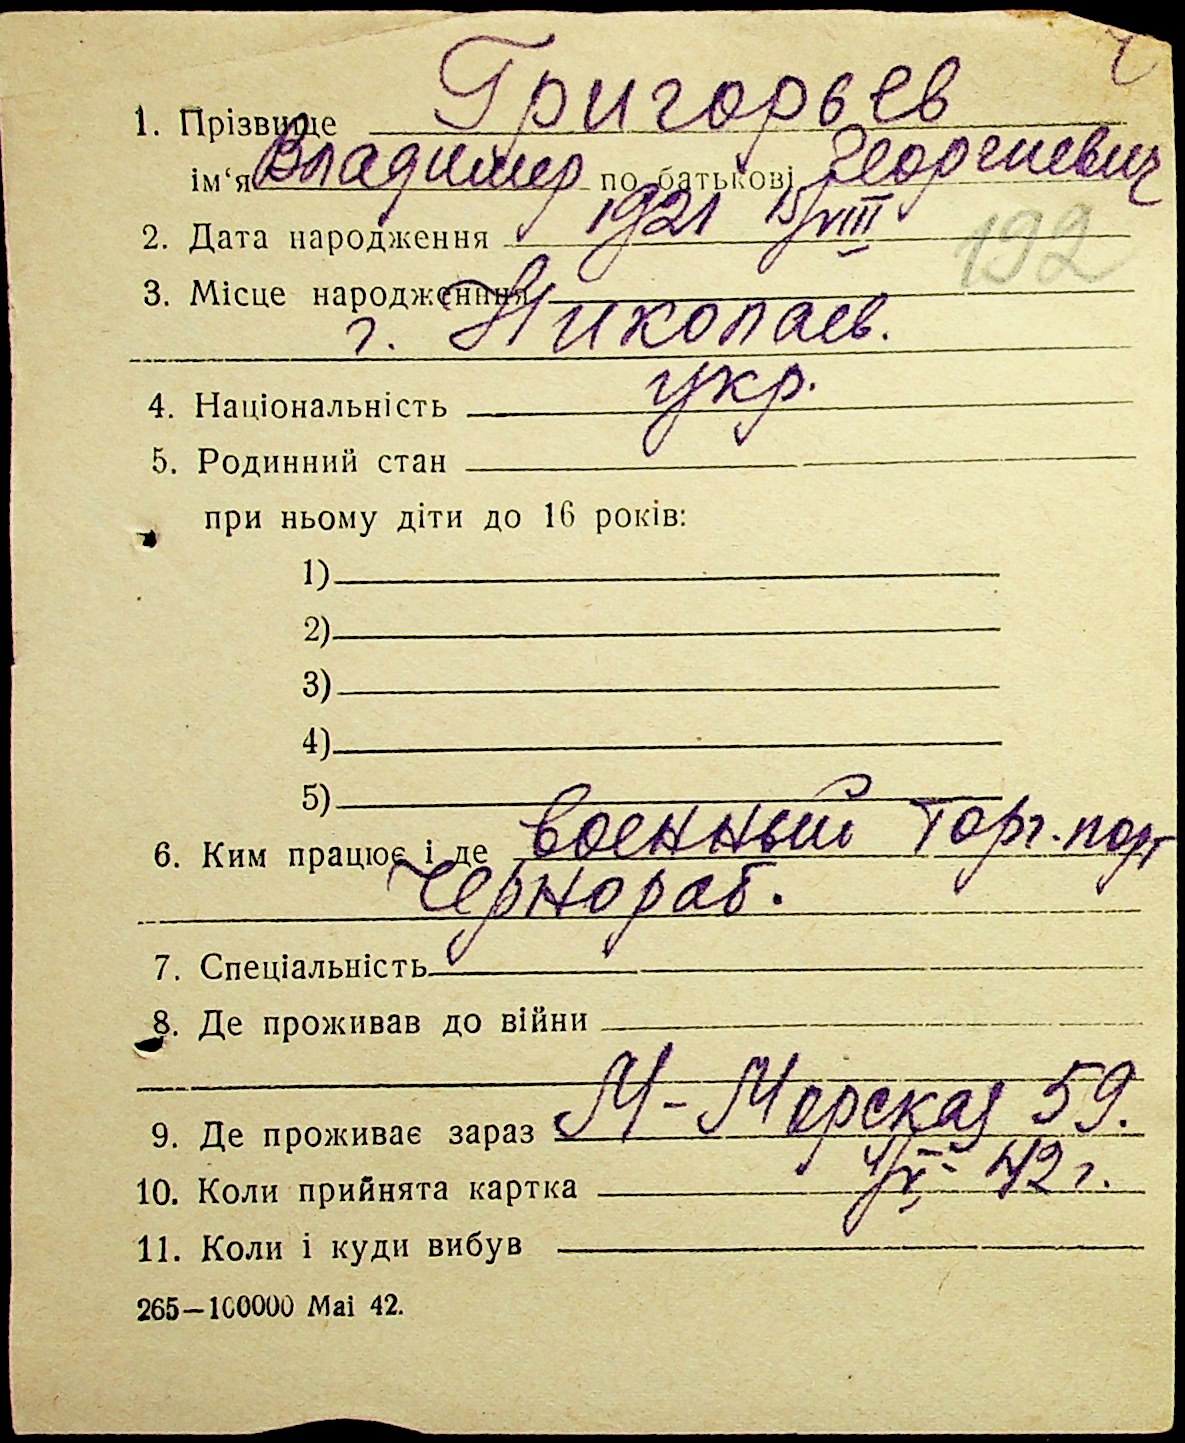 1. Прізвище Григорьев
ім‘я Владимир по батькові Георгиевич
2. Дата народження 1921 15/VIII
192
3. Місце народження
г. Николаев.
4. Національність укр.
5. Родинний стан
при ньому діти до 16 років:
1)
2)
3)
4)
5)
6. Ким працює і де военный Торг.порт
Чернораб.
7. Спеціальність
8. Де проживав до війни
9. Де проживає зараз М-Морская 59.
10. Коли прийнята картка 42 г.
11. Коли і куди вибув
265—100000 Mai 42.